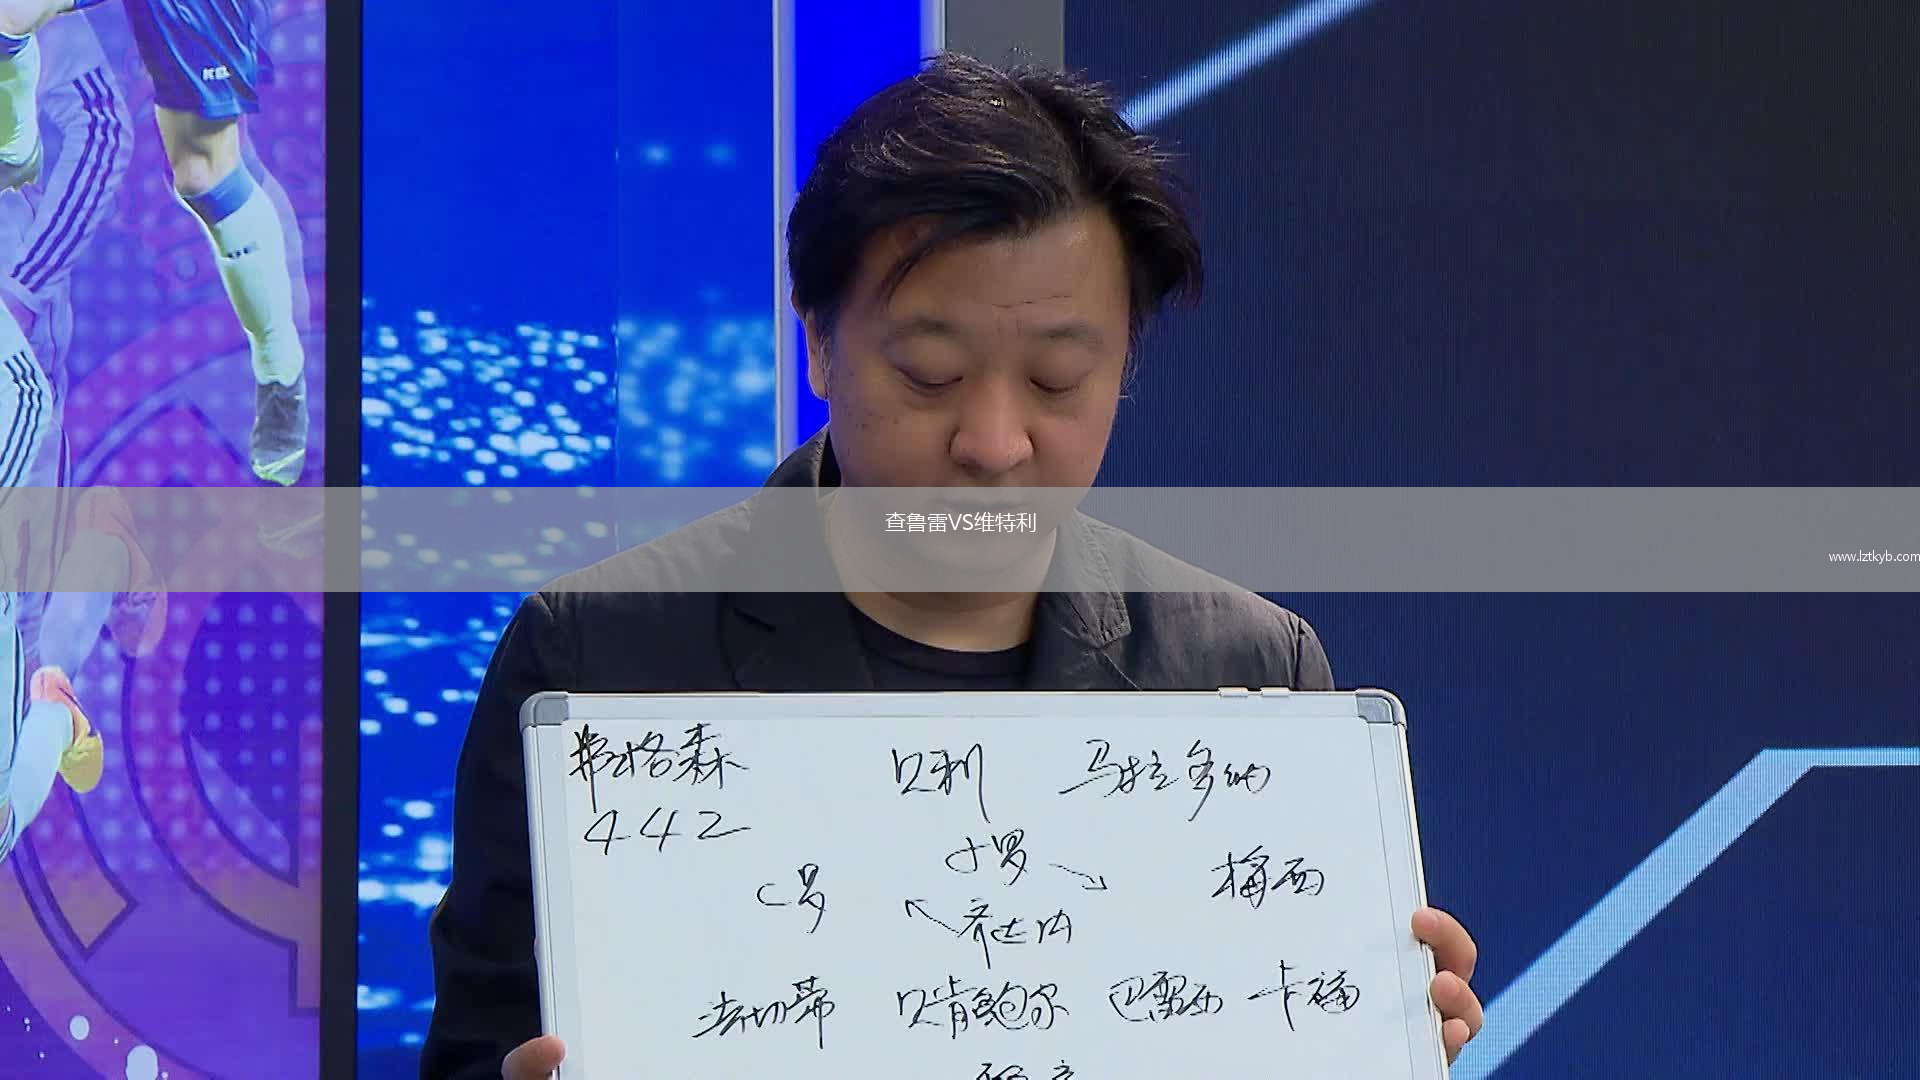 查鲁雷VS维特利
www.lztkyb.com
弗格森 贝利 马拉多纳
442
小罗
C罗 梅西
齐达内
法切蒂 贝肯鲍尔 巴雷西 卡福